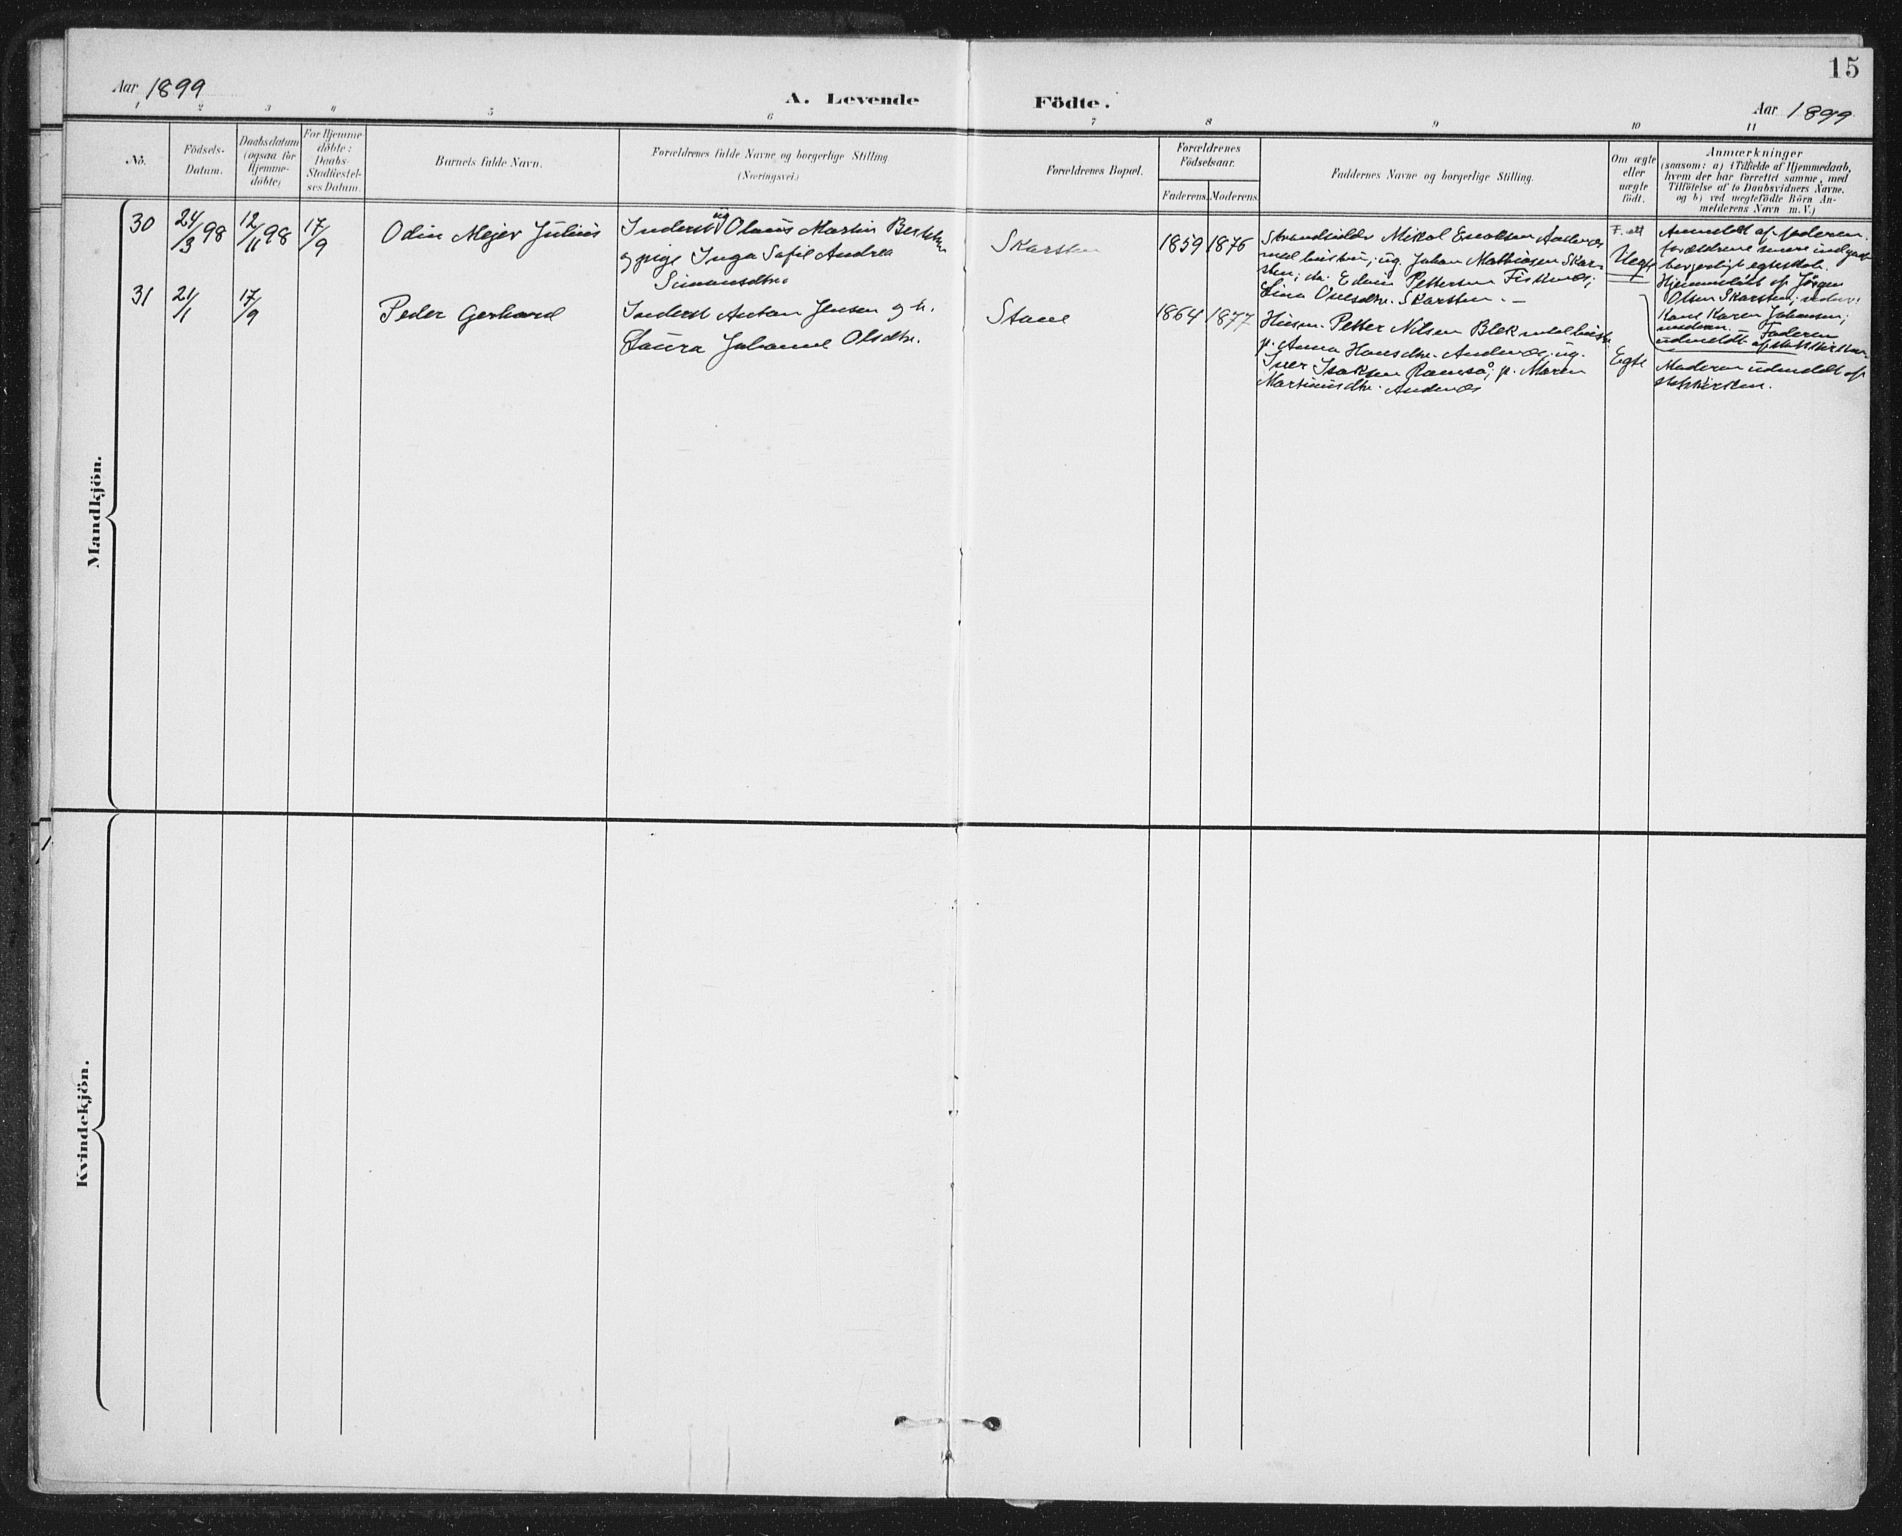 15
Aar 1899
A. Levende Födte.
Aar 1899
1 2 3 4 5 6 7 8 9 10 11
No.
Födsels-
Datum.
Daabsdatum
(ogsaa for
Hjemme-
döbte)
For Hjemme
döbte:
Daabs-
Stadfæstel-
ses Datum.
Barnets fulde Navn.
Forældrenes fulde Navne og borgerlige Stilling
(Næringsvei)
Forældrenes Bopæl.
Forældrenes
Födselsaar.
Faderens. Moderens.
Faddernes Navne og borgerlige Stilling.
Om ægte
eller
uægte
födt.
Anmærkninger
(saasom: a) i Tilfælde af Hjemmedaab,
hvem der har forrettet samme, med
Tilföielse af to Daabsvidners Navne.
og b) ved uægtefödte Börn An-
melderens Navn m. V.)
Mandkjön.
30
24/3 98
12/11 98
17/9
Odin Mejer Julius
Inderst ug Olaus Martin
og pige Inga Sofie Andrea
Simonsdtr.
Skarsten
1859 1876
Strandsidder Mikal Enoksen Andenæs
med hustru; ug. Johan Mathiasen Skar-
sten; Edvin Pettersen Fiskenæs;
Lina Skarsten. —
F. alt
Uegte
Anmeldt af faderen.
forældrene senere indgaaet
borgerligt egteskab.
Hjemmedöbt af Jörgen
Olsen Skarsten;
Kone Karen Johansen;
moderen. Faderen
udmeldt af statskirken.
31
21/1
17/9
Peder Gerhard
Inderst Anton Jensen og h.
Laura Johanne Olsdtr.
Stave
1864 1877
Husm. Petter Nilsen Blek med hustr.
p. Anna Hansdtr. Andenæs; ug.
Iver Isaksen Ramså; p. Maren
Martinusdtr. Andenæs
Egte
Moderen udmeldt af
statskirken.
Kvindekjön.